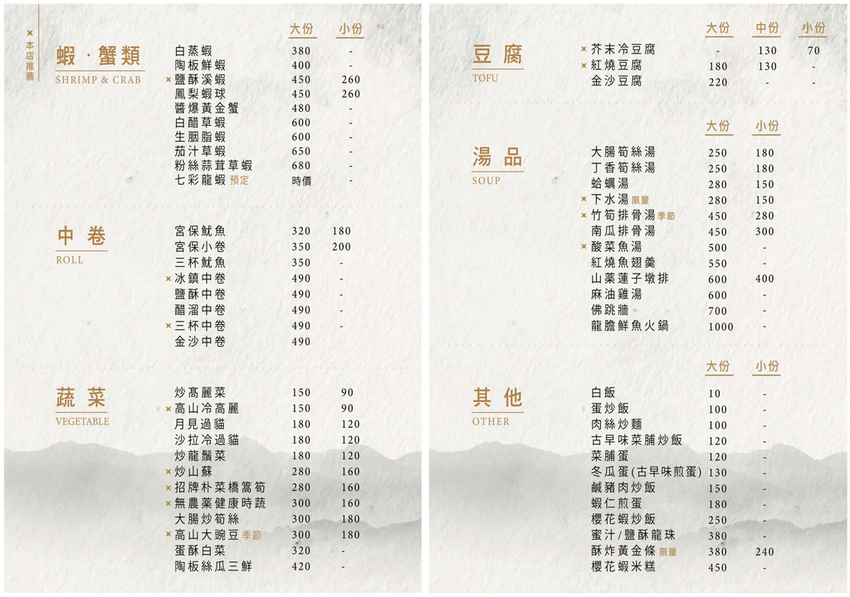 本店推薦
大份 小份
蝦·蟹類
SHRIMP & CRAB
白蒸蝦 380 -
陶板鮮蝦 400 -
鹽酥溪蝦 450 260
鳳梨蝦球 450 260
醬爆黃金蟹 480 -
白醋草蝦 600 -
生胭脂蝦 600 -
茄汁草蝦 650 -
粉絲蒜茸草蝦 680 -
七彩龍蝦 預定 時價 -
中卷
ROLL
宮保魷魚 320 180
宮保小卷 350 200
三杯魷魚 350 -
冰鎮中卷 490 -
鹽酥中卷 490 -
醋溜中卷 490 -
三杯中卷 490 -
金沙中卷 490
蔬菜
VEGETABLE
炒高麗菜 150 90
高山冷高麗 150 90
月見過貓 180 120
沙拉冷過貓 180 120
炒龍鬚菜 180 120
炒山蘇 280 160
招牌朴菜橋篙筍 280 160
無農藥健康時蔬 300 160
大腸炒筍絲 300 180
高山大豌豆 季節 300 180
蛋酥白菜 320 -
陶板絲瓜三鮮 420 -
大份 中份 小份
豆腐
TOFU
芥末冷豆腐 - 130 70
紅燒豆腐 180 130 -
金沙豆腐 220 - -
大份 小份
湯品
SOUP
大腸筍絲湯 250 180
丁香筍絲湯 250 180
蛤蠣湯 280 150
下水湯 限量 280 150
竹筍排骨湯 季節 450 280
南瓜排骨湯 450 300
酸菜魚湯 500 -
紅燒魚翅羹 550 -
山藥蓮子燉排 600 400
麻油雞湯 600 -
佛跳牆 700 -
龍膽鮮魚火鍋 1000 -
大份 小份
其他
OTHER
白飯 10 -
蛋炒飯 100 -
肉絲炒麵 100 -
古早味菜脯炒飯 120 -
菜脯蛋 120 -
冬瓜蛋(古早味煎蛋) 130 -
鹹豬肉炒飯 150 -
蝦仁煎蛋 180 -
櫻花蝦炒飯 250 -
蜜汁/鹽酥龍珠 380 -
酥炸黃金條 限量 380 240
櫻花蝦米糕 450 -